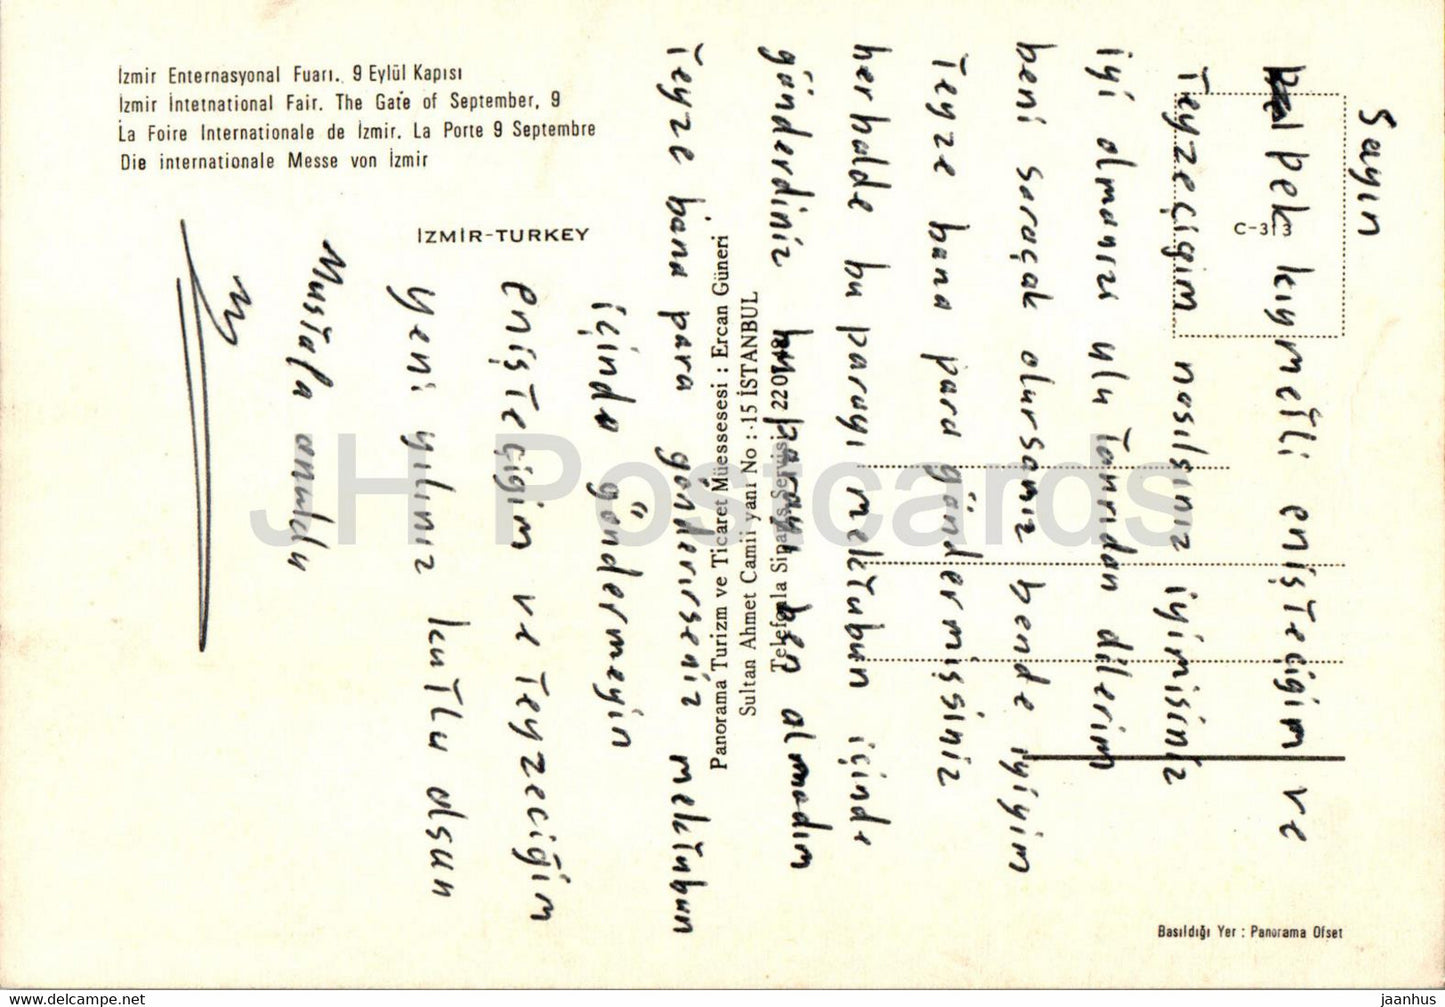 İzmir Enternasyonal Fuarı. 9 Eylül Kapısı
İzmir İntetnational Fair. The Gate of September, 9
La Foire Internationale de İzmir. La Porte 9 Septembre
Die internationale Messe von İzmir
İZMİR-TURKEY
C-313
Panorama Turizm ve Ticaret Müessesesi : Ercan Güneri
Sultan Ahmet Camii yanı No : 15 İSTANBUL
Telefonla Sipariş Servisi 220748
Basıldığı Yer : Panorama Ofset
Sayın
pek kıymetli enişteciğim ve
Teyzeciğim nasılsınız iyimisiniz
iyi olmanızı ulu Tanrıdan dilerim
beni soraçak olursanız bende iyiyim
Teyze bana para göndermişsiniz
herhalde bu parayı mektubun içinde
gönderdiniz bu parayı ben almadım
Teyze bana para gönderirseniz mektubun
içinde göndermeyin
enişteçigim ve Teyzeciğim
yeni yılınız kutlu olsun
Mustafa
JH Postcards
https://www.hippostcard.com
jaanhus